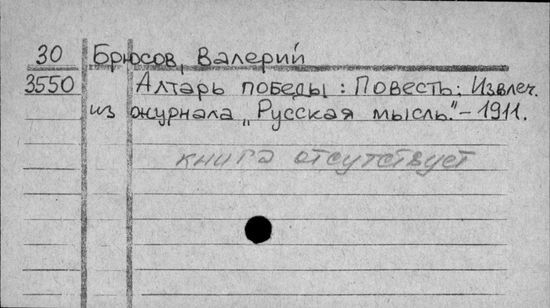 30 Брюсов, Валерий
3550 Алтарь победы : Повесть; Извлеч.
из журнала „Русская мысль". – 1911.
книга отсутствует